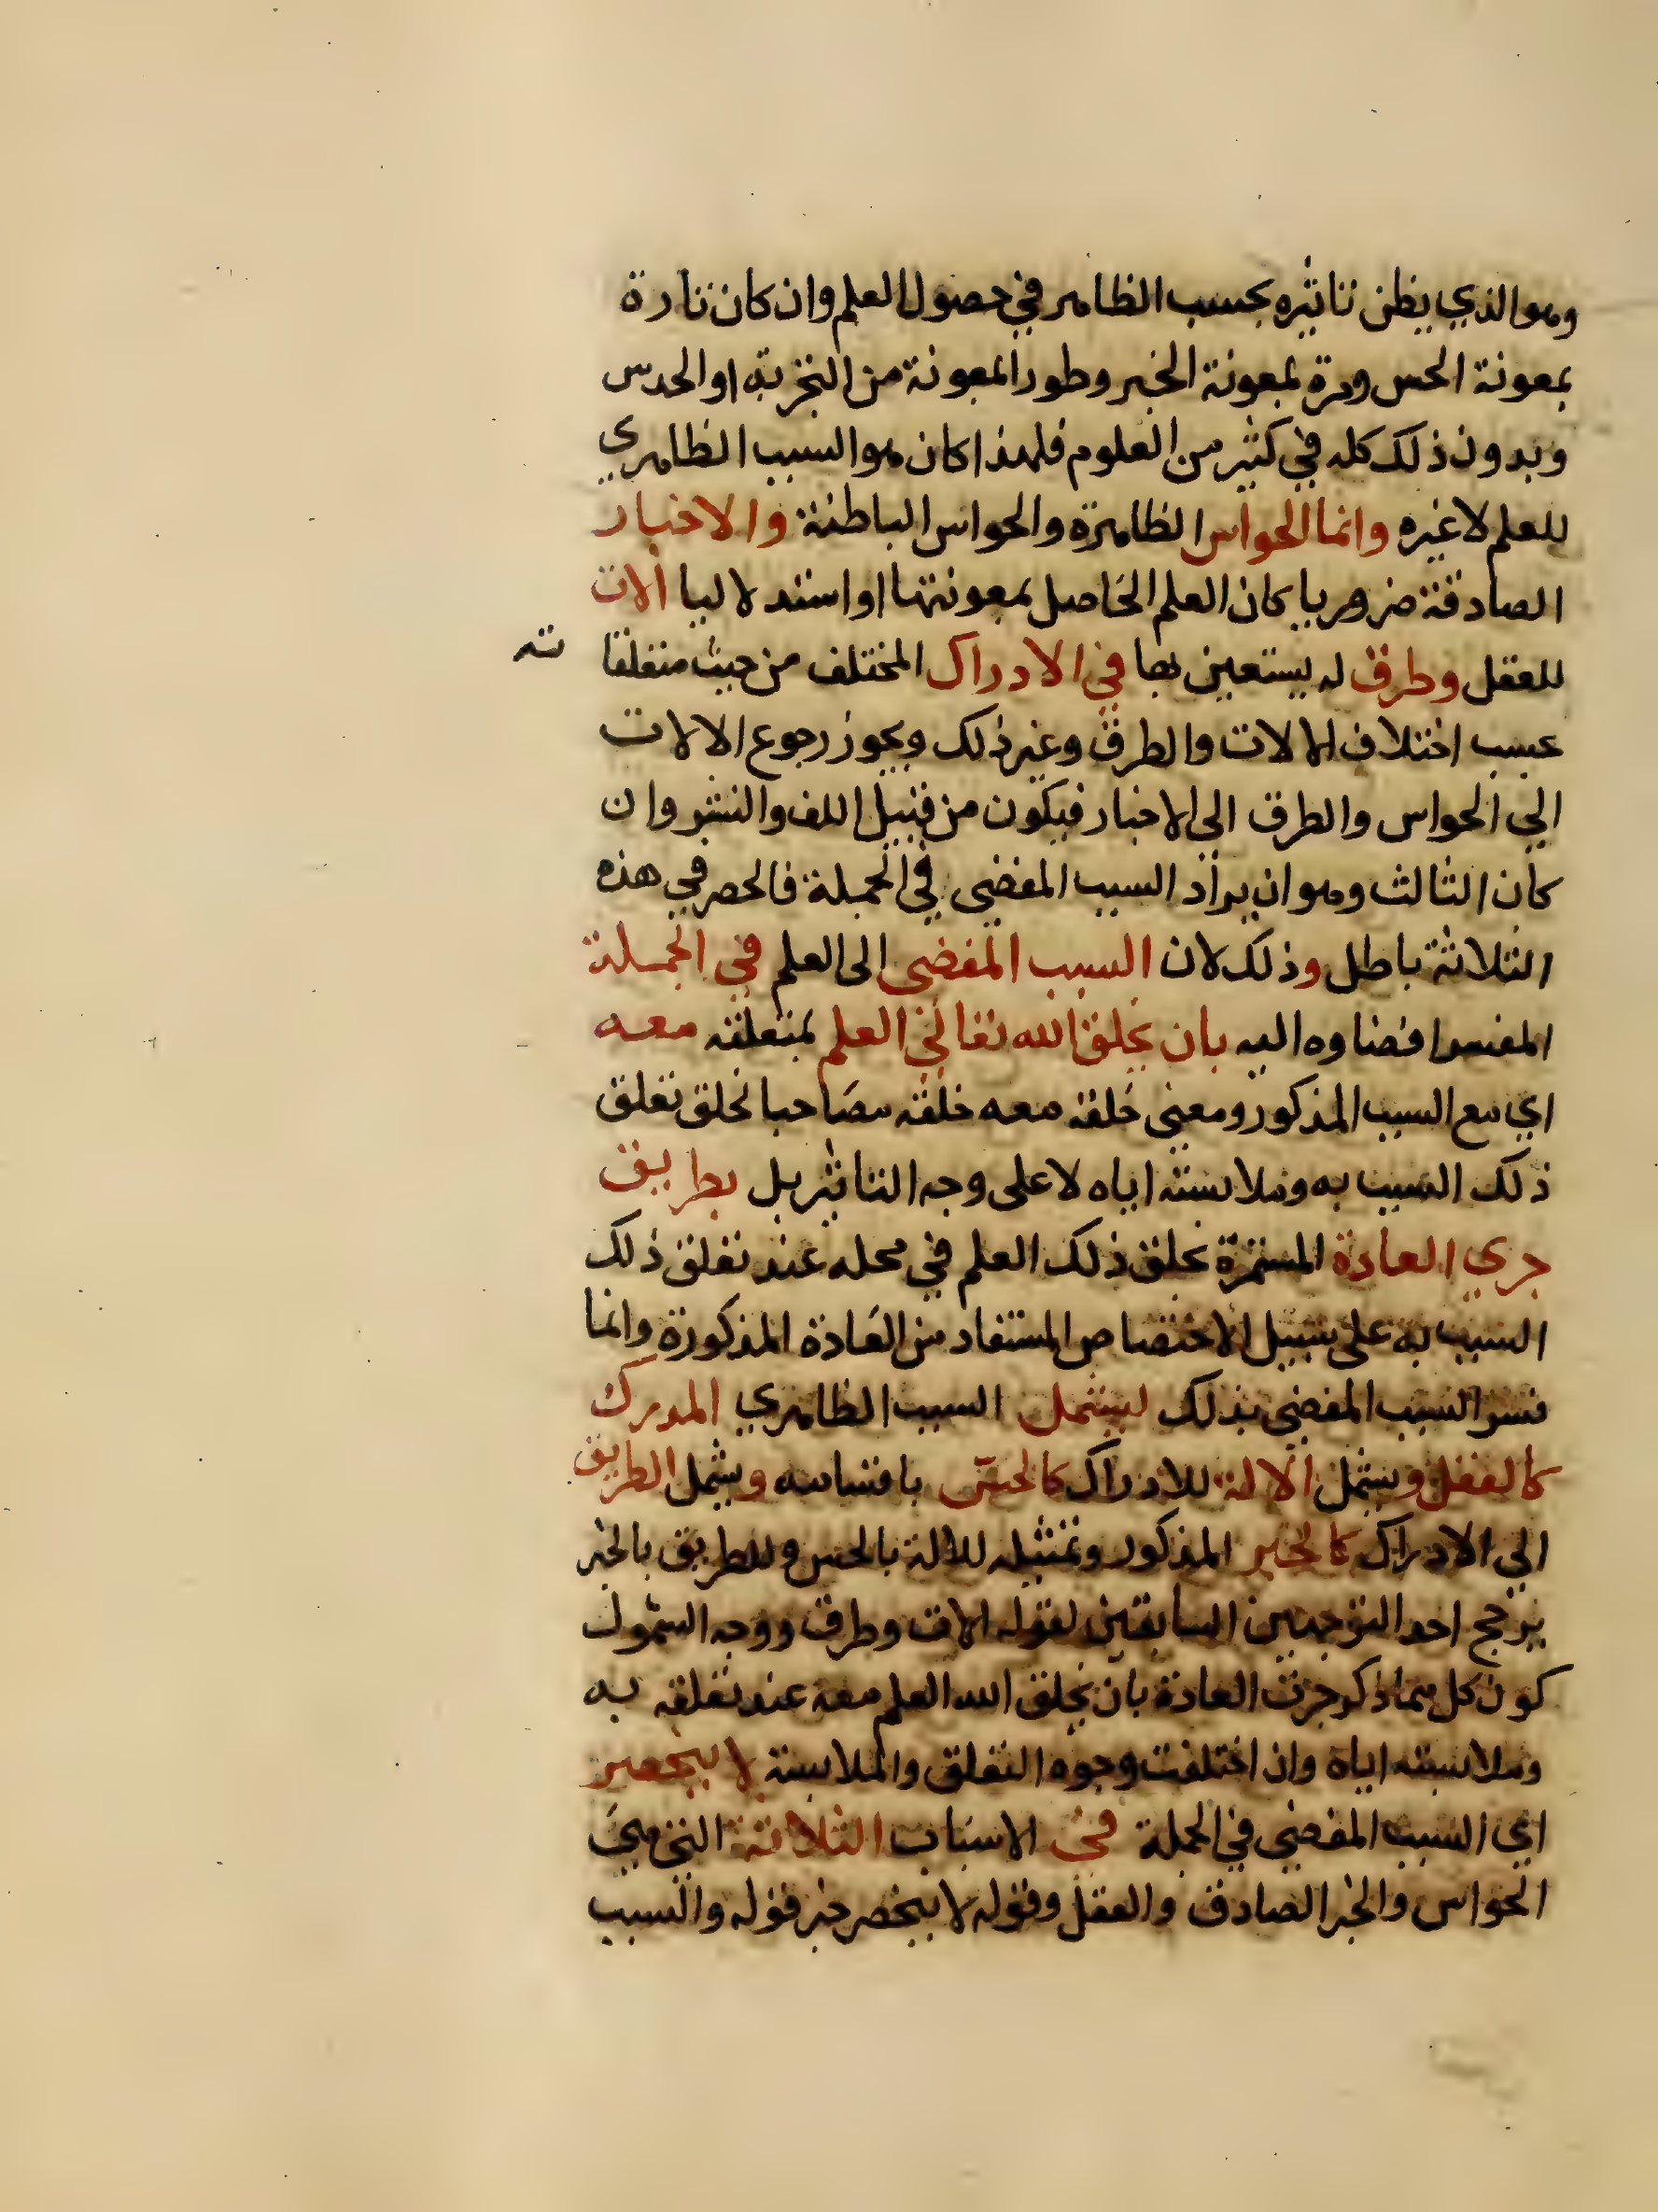 وهو الذي يظن تاثيره بحسب الظاهر في حصول العلم وان كان تارة
بمعونة الحس ومرة بمعونة الخبر وطورا بمعونة من التجربة او الحدس
وبدون ذلك كله في كثير من العلوم فلهذا كان هو السبب الظاهري
للعلم لا غيره وانما الحواس الظاهرة والحواس الباطنة والاخبار
الصادقة ضروريا كان العلم الحاصل بمعونتها او استدلاليا الات
للعقل وطرق له يستعين بها في الادراك المختلف من حيث متعلقا ته
بحسب اختلاف الالات والطرق وغير ذلك ويجوز رجوع الالات
الي الحواس والطرق الى الاخبار فيكون من قبيل اللف والنشر وان
كان الثالث وهو ان يراد السبب المفضي في الجملة فالحصر في هذه
الثلاثة باطل وذلك لان السبب المفضي الى العلم في الجملة
المفسر افضاوه اليه بان يخلق الله تعالي العلم بمتعلقه معه
اي مع السبب المذكور ومعني خلقه معه خلقه مصاحبا لخلق تعلق
ذلك السبب به وملابسته اياه لا على وجه التاثير بل بطريق
جري العادة المستمرة بخلق ذلك العلم في محله عند تعلق ذلك
السبب به على سبيل الاختصاص المستفاد من العادة المذكورة وانما
فسر السبب المفضي بذلك ليشمل السبب الظاهري المدرك
كالعقل ويشمل الالة للادراك كالحسّ باقسامه ويشمل الطريق
الي الادراك كالخبر المذكور وتمثيله للالة بالحس وللطريق بالخبر
يرجح احد التوجيهين السابقين لقوله الات وطرق ووجه الشمول
كون كل مما ذكر جرت العادة بان يخلق الله العلم معه عند تعلقه به
وملابسته اياه وان اختلفت وجوه التعلق والملابسة لا ينحصر
اي السبب المفضي في الجملة في الاسباب الثلاثة التي هي
الحواس والخبر الصادق والعقل وقوله لا ينحصر خبر قوله والسبب